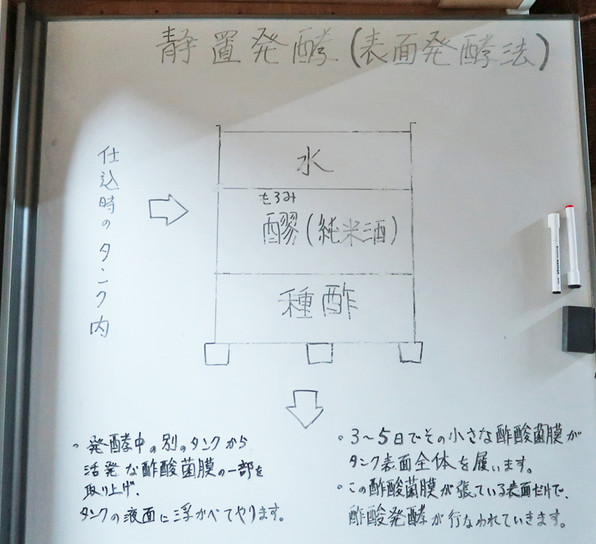 静置発酵(表面発酵法)
仕込時のタンク内
水
もろみ
醪(純米酒)
種酢
・発酵中の別のタンクから
活発な酢酸菌膜の一部を
取り上げ、
タンクの液面に浮かべてやります。
・3〜5日でその小さな酢酸菌膜が
タンク表面全体を覆います。
・この酢酸菌膜が張っている表面だけで、
酢酸発酵が行なわれていきます。